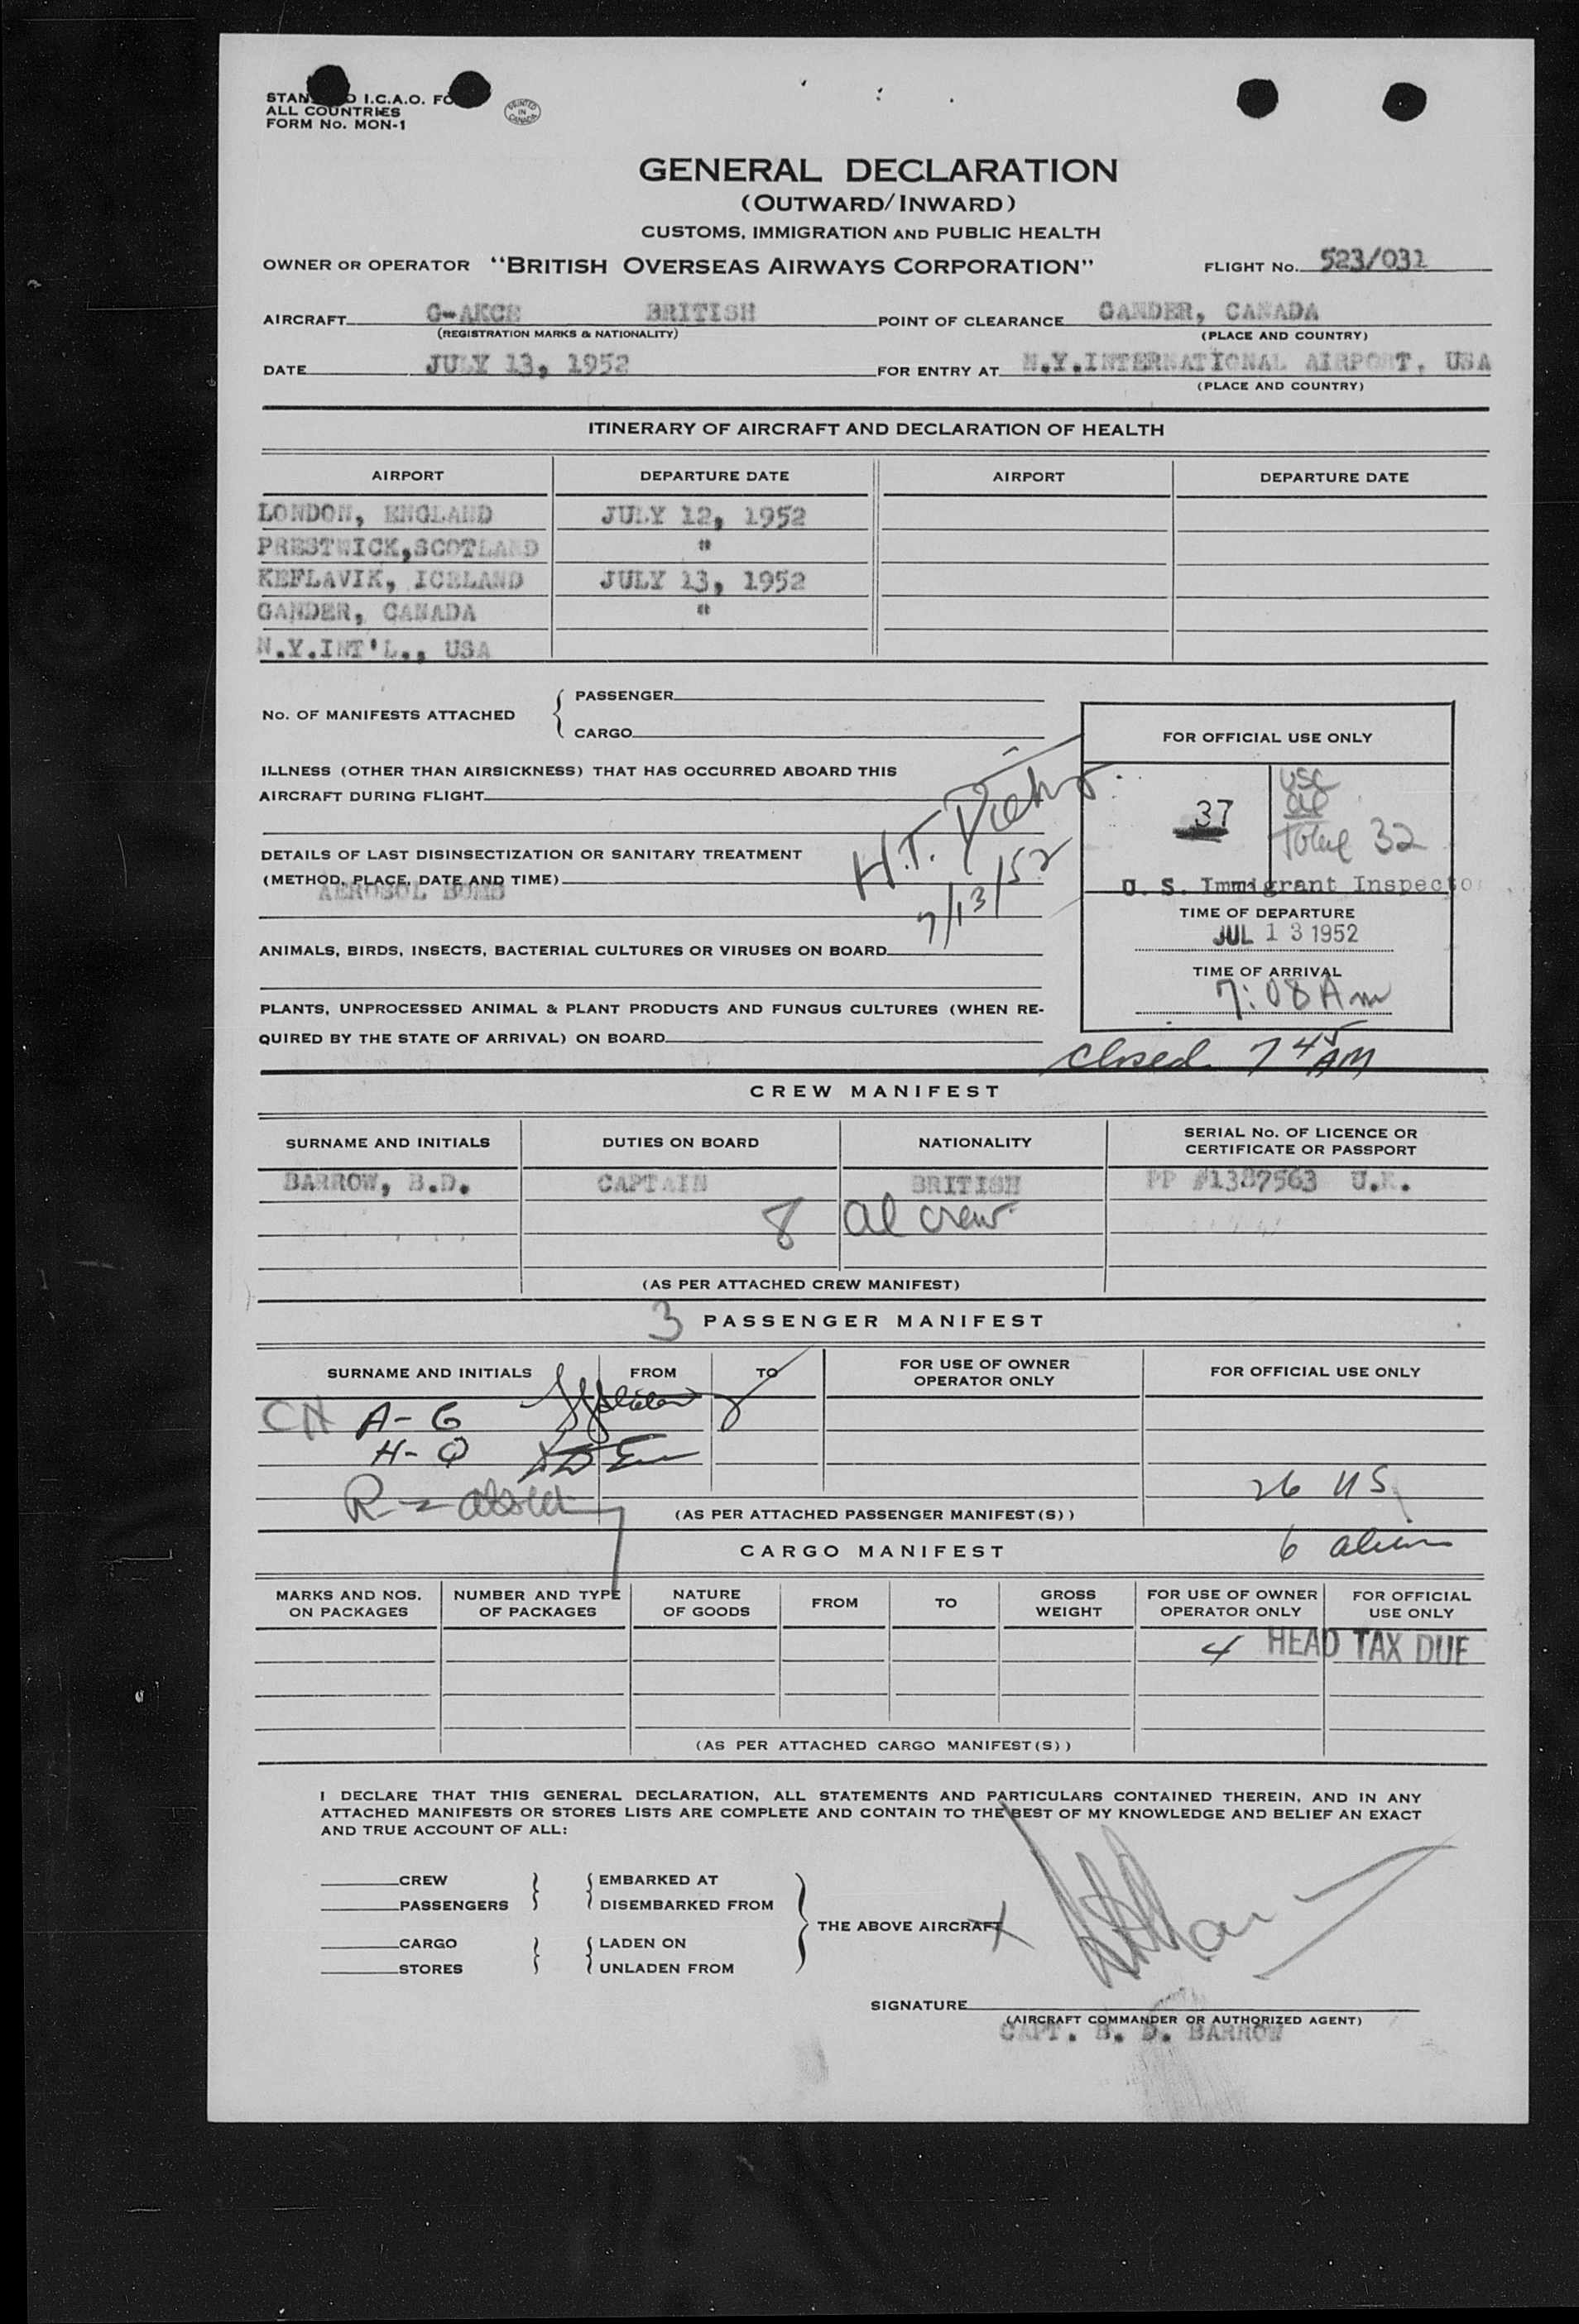 STAN D I.C.A.O. FO
ALL COUNTRIES
FORM No. MON-1
PRINTED IN CANADA
GENERAL DECLARATION
(OUTWARD/INWARD)
CUSTOMS, IMMIGRATION AND PUBLIC HEALTH
OWNER OR OPERATOR "BRITISH OVERSEAS AIRWAYS CORPORATION" FLIGHT No. 523/031
AIRCRAFT G-AKCE BRITISH POINT OF CLEARANCE GANDER, CANADA
(REGISTRATION MARKS & NATIONALITY) (PLACE AND COUNTRY)
DATE JULY 13, 1952 FOR ENTRY AT N.Y.INTERNATIONAL AIRPORT, USA
(PLACE AND COUNTRY)
ITINERARY OF AIRCRAFT AND DECLARATION OF HEALTH
AIRPORT DEPARTURE DATE AIRPORT DEPARTURE DATE
LONDON, ENGLAND JULY 12, 1952
PRESTWICK,SCOTLAND "
KEFLAVIK, ICELAND JULY 13, 1952
GANDER, CANADA "
N.Y.INT'L., USA
No. OF MANIFESTS ATTACHED { PASSENGER
CARGO
FOR OFFICIAL USE ONLY
ILLNESS (OTHER THAN AIRSICKNESS) THAT HAS OCCURRED ABOARD THIS
AIRCRAFT DURING FLIGHT
37 USC
al
Total 32
H.T.
7/13/52
DETAILS OF LAST DISINSECTIZATION OR SANITARY TREATMENT
(METHOD, PLACE, DATE AND TIME)
AEROSOL BOMB
U. S. Immigrant Inspector
TIME OF DEPARTURE
JUL 13 1952
ANIMALS, BIRDS, INSECTS, BACTERIAL CULTURES OR VIRUSES ON BOARD
TIME OF ARRIVAL
7:08 Am
PLANTS, UNPROCESSED ANIMAL & PLANT PRODUCTS AND FUNGUS CULTURES (WHEN RE-
QUIRED BY THE STATE OF ARRIVAL) ON BOARD
Closed 7 45 AM
CREW MANIFEST
SURNAME AND INITIALS DUTIES ON BOARD NATIONALITY SERIAL No. OF LICENCE OR
CERTIFICATE OR PASSPORT
BARROW, B.D. CAPTAIN BRITISH PP #1387563 U.K.
8 al crew
(AS PER ATTACHED CREW MANIFEST)
3 PASSENGER MANIFEST
SURNAME AND INITIALS FROM TO FOR USE OF OWNER
OPERATOR ONLY FOR OFFICIAL USE ONLY
CH A-G
H-Q
R-Z
26 US
(AS PER ATTACHED PASSENGER MANIFEST(S))
6 aliens
CARGO MANIFEST
MARKS AND NOS.
ON PACKAGES NUMBER AND TYPE
OF PACKAGES NATURE
OF GOODS FROM TO GROSS
WEIGHT FOR USE OF OWNER
OPERATOR ONLY FOR OFFICIAL
USE ONLY
4 HEAD TAX DUE
(AS PER ATTACHED CARGO MANIFEST(S))
I DECLARE THAT THIS GENERAL DECLARATION, ALL STATEMENTS AND PARTICULARS CONTAINED THEREIN, AND IN ANY
ATTACHED MANIFESTS OR STORES LISTS ARE COMPLETE AND CONTAIN TO THE BEST OF MY KNOWLEDGE AND BELIEF AN EXACT
AND TRUE ACCOUNT OF ALL:
CREW EMBARKED AT
PASSENGERS DISEMBARKED FROM
THE ABOVE AIRCRAFT X
CARGO LADEN ON
STORES UNLADEN FROM
SIGNATURE
(AIRCRAFT COMMANDER OR AUTHORIZED AGENT)
CAPT. B. D. BARROW